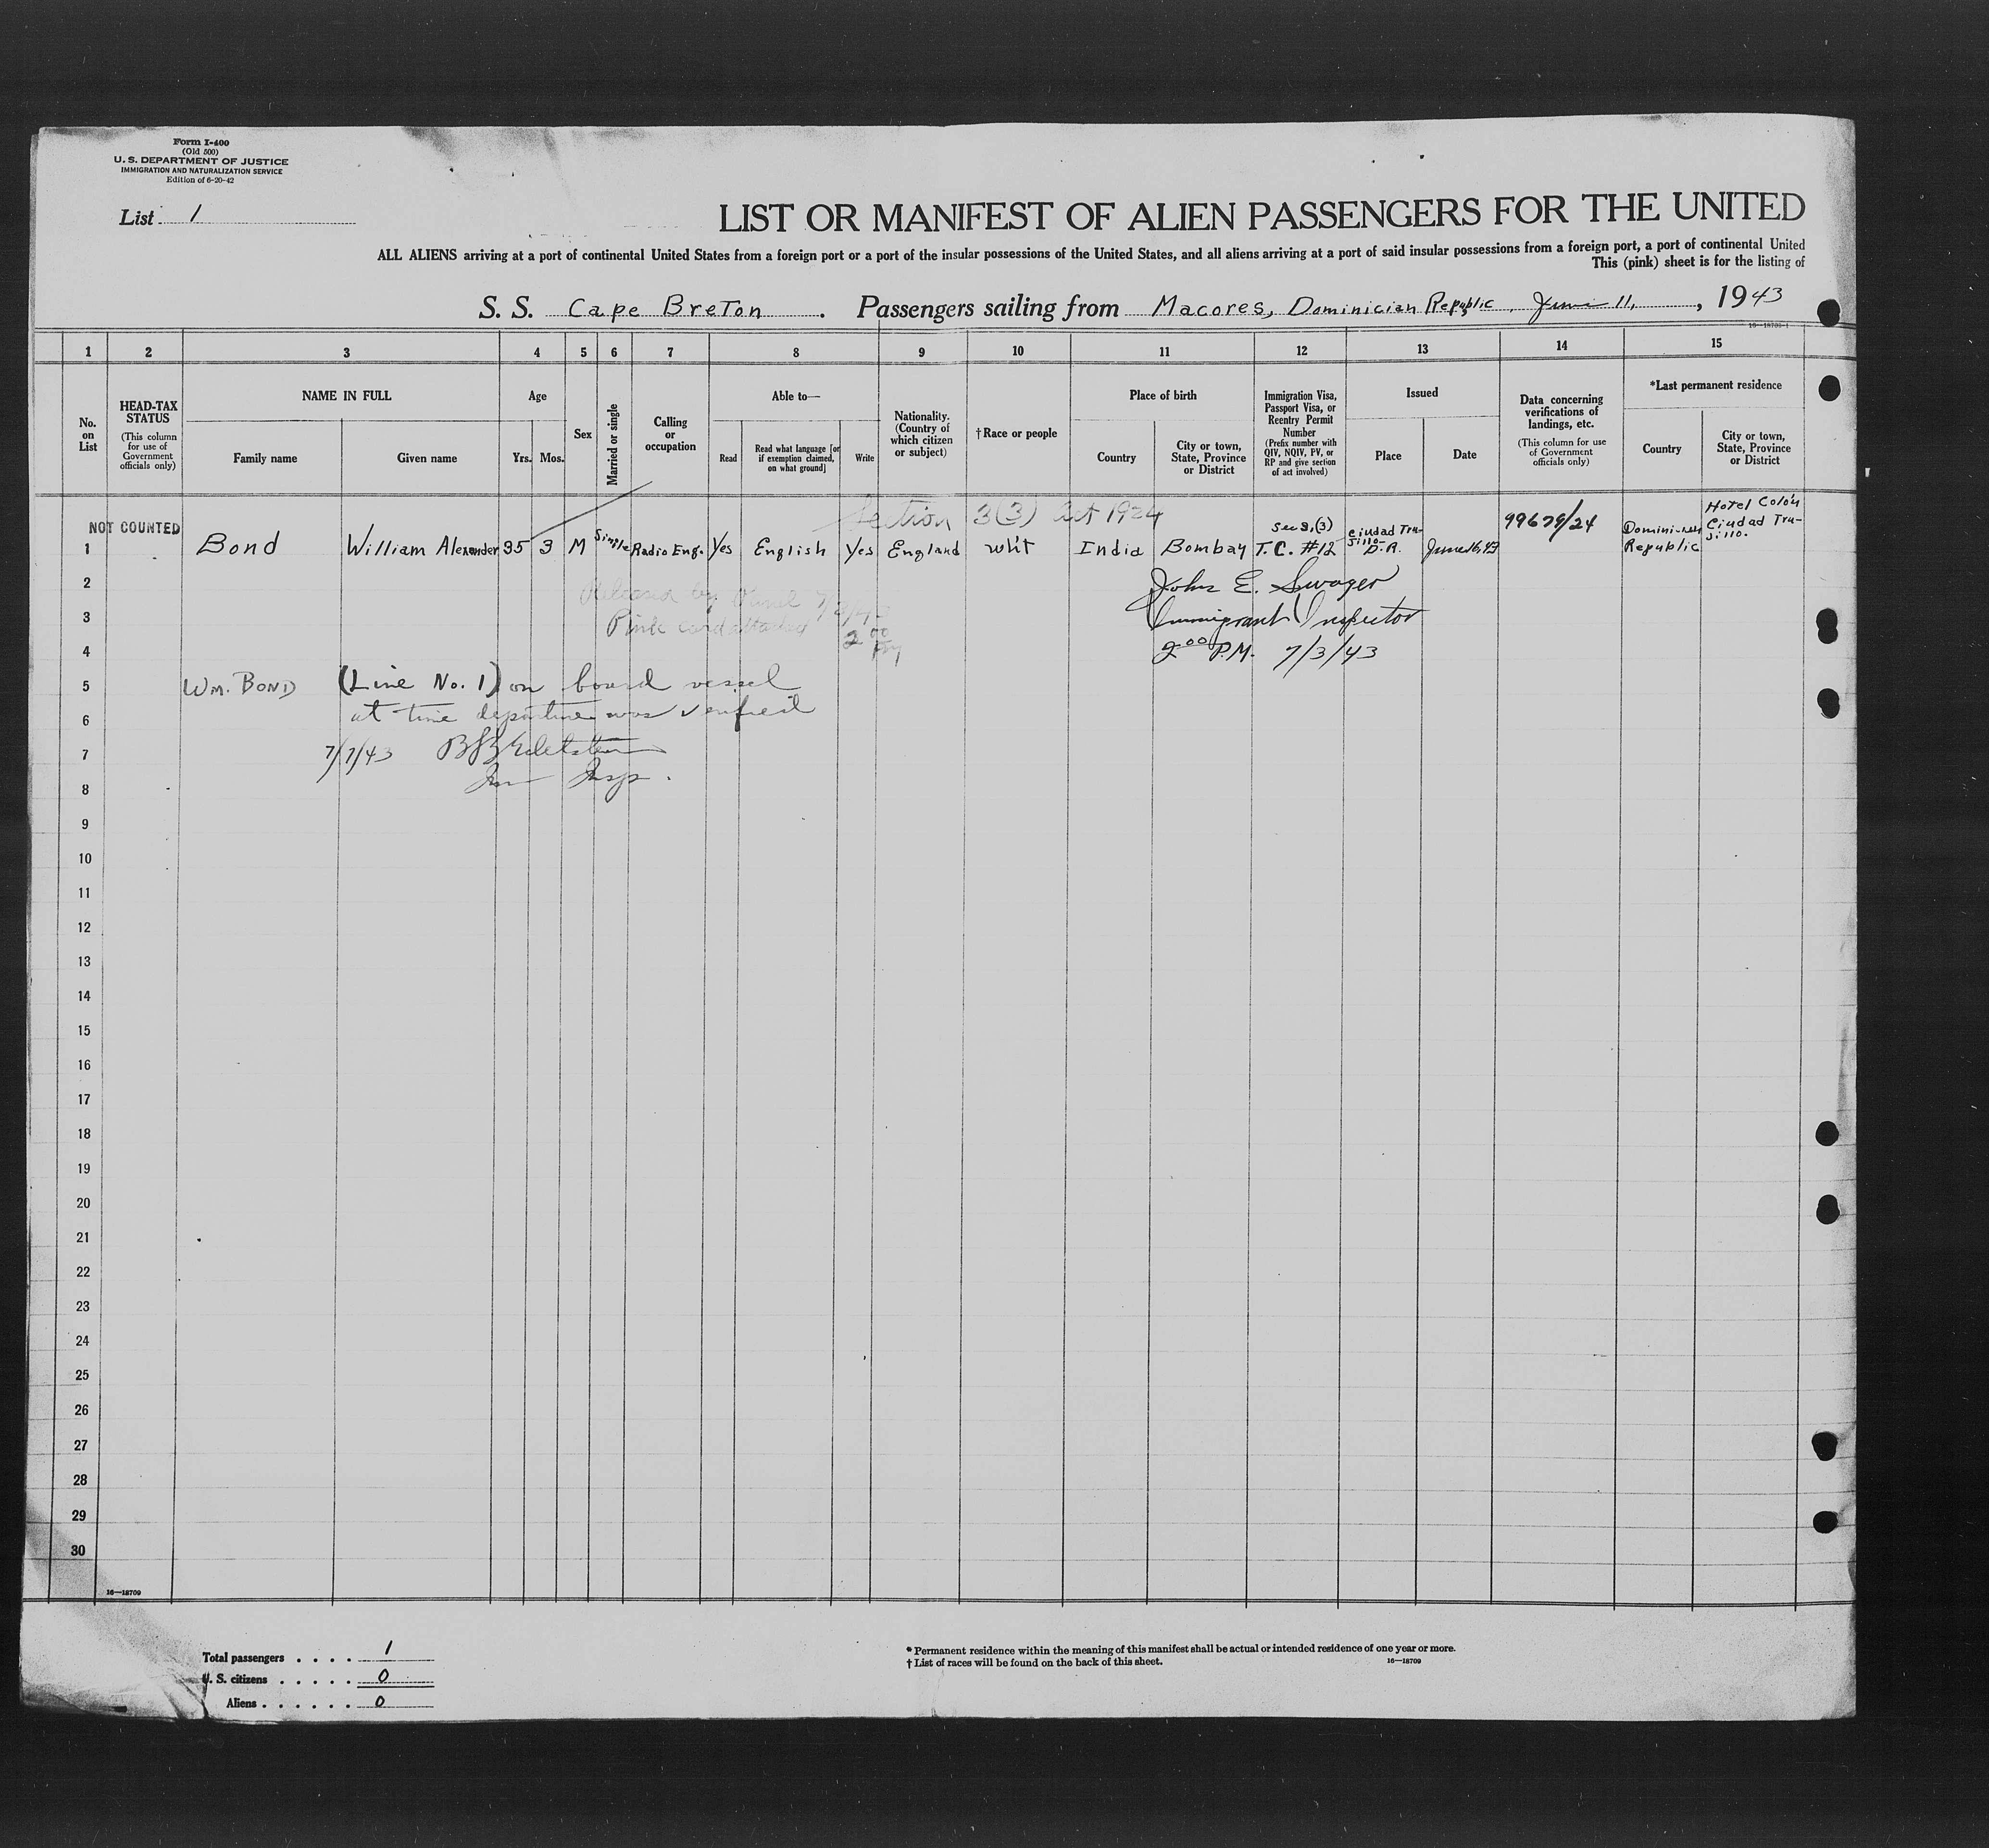 Form I-400
(Old 500)
U. S. DEPARTMENT OF JUSTICE
IMMIGRATION AND NATURALIZATION SERVICE
Edition of 6-20-42
List 1
LIST OR MANIFEST OF ALIEN PASSENGERS FOR THE UNITED
ALL ALIENS arriving at a port of continental United States from a foreign port or a port of the insular possessions of the United States, and all aliens arriving at a port of said insular possessions from a foreign port, a port of continental United
This (pink) sheet is for the listing of
S. S. Cape Breton. Passengers sailing from Macores, Dominician Republic, June 11, , 1943
16—18709-1
1 2 3 4 5 6 7 8 9 10 11 12 13 14 15
No. on List
HEAD-TAX STATUS
(This column for use of Government officials only)
NAME IN FULL
Family name
Given name
Age
Yrs.
Mos.
Sex
Married or single
Calling or occupation
Able to—
Read
Read what language [or if exemption claimed, on what ground]
Write
Nationality. (Country of which citizen or subject)
†Race or people
Place of birth
Country
City or town, State, Province or District
Immigration Visa, Passport Visa, or Reentry Permit Number
(Prefix number with QIV, NQIV, PV, or RP and give section of act involved)
Issued
Place
Date
Data concerning verifications of landings, etc.
(This column for use of Government officials only)
*Last permanent residence
Country
City or town, State, Province or District
Section 3(3) Act 1924
NOT COUNTED
1 Bond William Alexander 35 3 M Single Radio Eng. Yes English Yes England whit India Bombay Sec 3,(3) T.C. #12 Ciudad Tru-jillo- D.R. 99679/24 Domini-can Republic Hotel Colón Ciudad Tru-jillo.
2 John E. Swager
3 Pink card attached Immigrant Inspector
2 00 PM
4 2 00 P.M. 7/3/43
5 Wm. Bond (Line No. 1) on board vessel
6 at time departure was verified
7 7/7/43
8 Im Insp.
9
10
11
12
13
14
15
16
17
18
19
20
21
22
23
24
25
26
27
28
29
30
16—18709
Total passengers . . . . 1
U. S. citizens . . . . . 0
Aliens . . . . . . 0
* Permanent residence within the meaning of this manifest shall be actual or intended residence of one year or more.
† List of races will be found on the back of this sheet.
16—18709